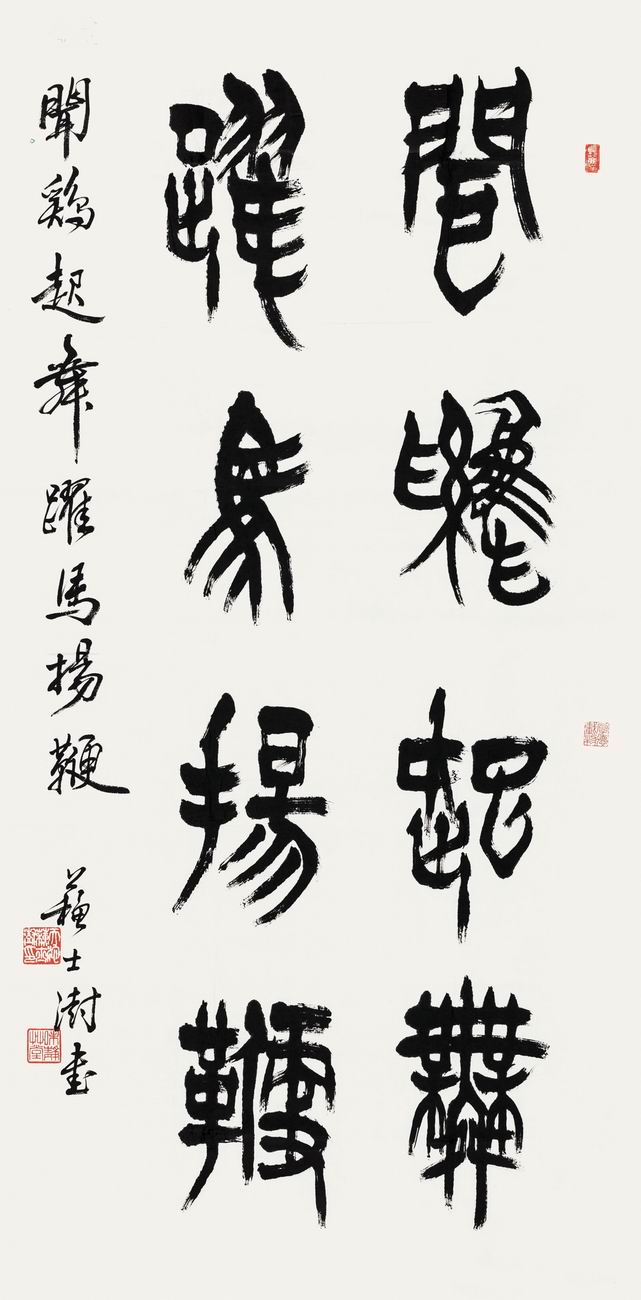 聞鷄起舞
躍馬揚鞭
聞鷄起舞躍馬揚鞭 蘇士澍書